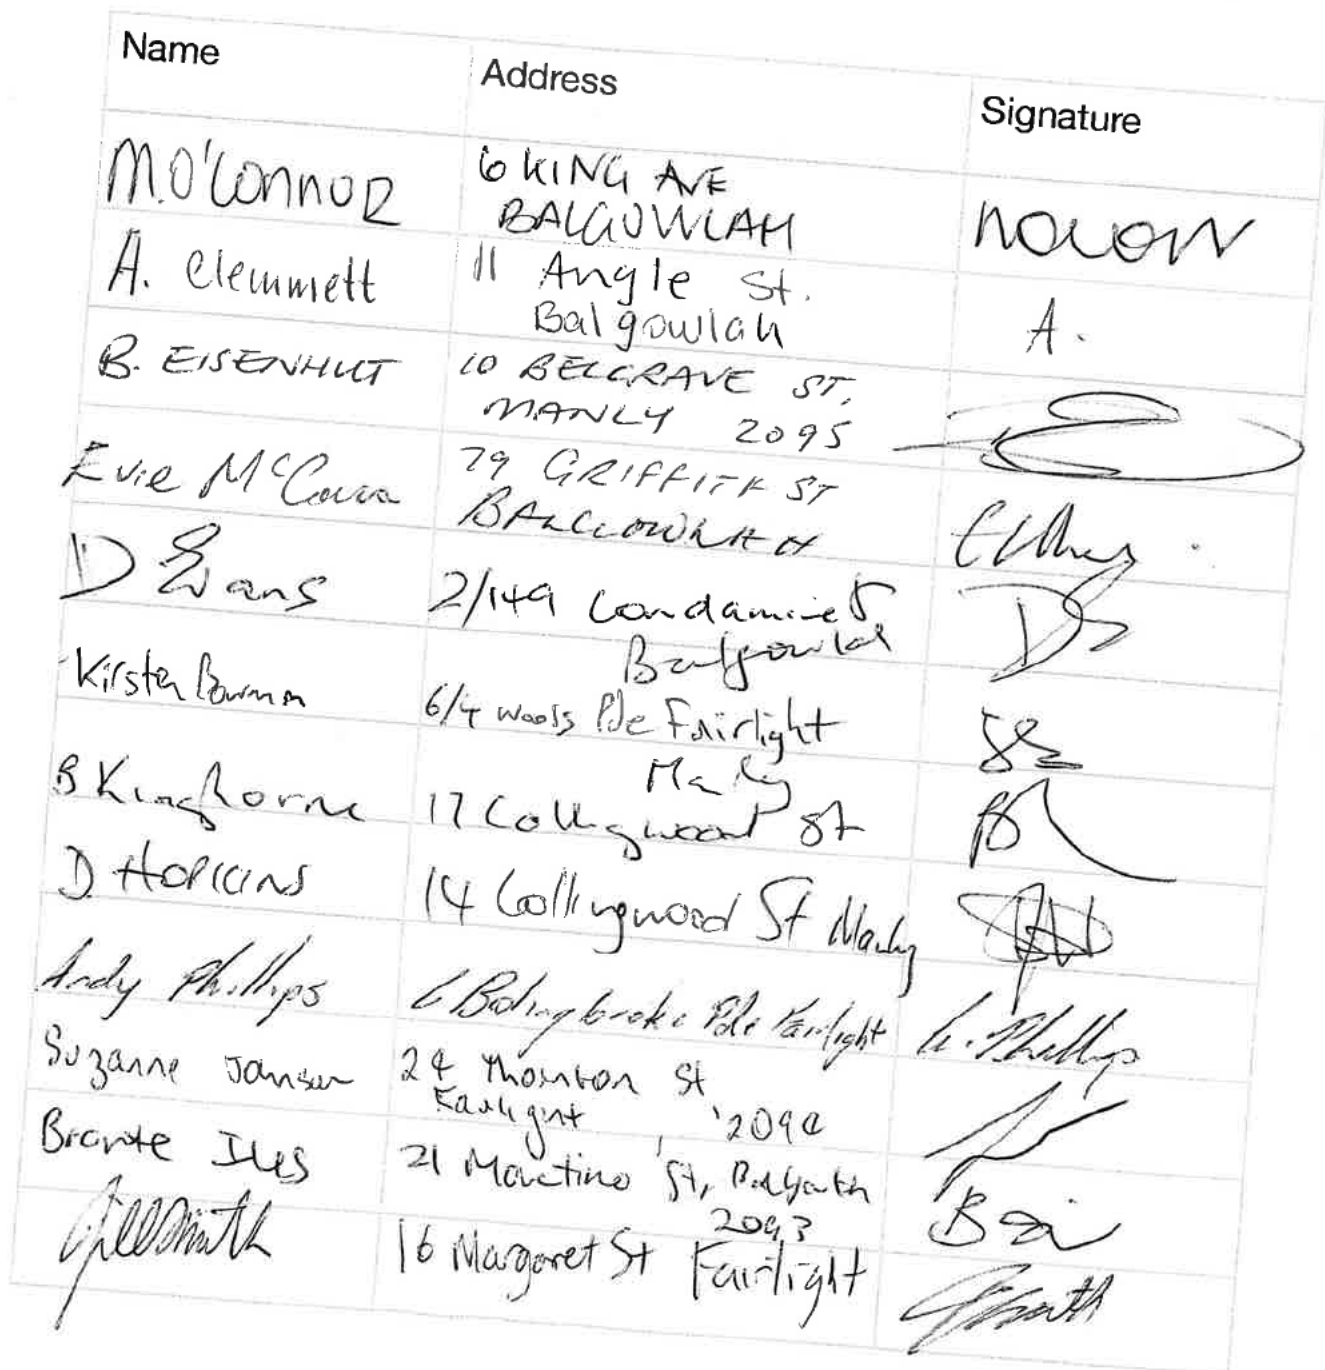 Name Address Signature
M.O'CONNOR 6 KING AVE
BALGOWLAH
A. Clemmett 11 Angle St.
Balgowlah A.
B. EISENHUT 10 BELGRAVE ST,
MANLY 2095
Evie 79 GRIFFITH ST
BALGOWLAH
D Evans 2/149 Condamine St
Balgowlah
Kirsten 6/4 Woods Pde Fairlight
Manly
B Kinghorne 17 Collingwood St
D. HOPKINS 14 Collingwood St Manly
Andy Phillips 6 Bolingbroke Pde Fairlight A. Phillips
Suzanne Jansen 24 Thornton St
Fairlight, 2094
Bronte Iles 21 Martino St, Balgowlah
2093
Jill Smith 16 Margaret St Fairlight JSmith